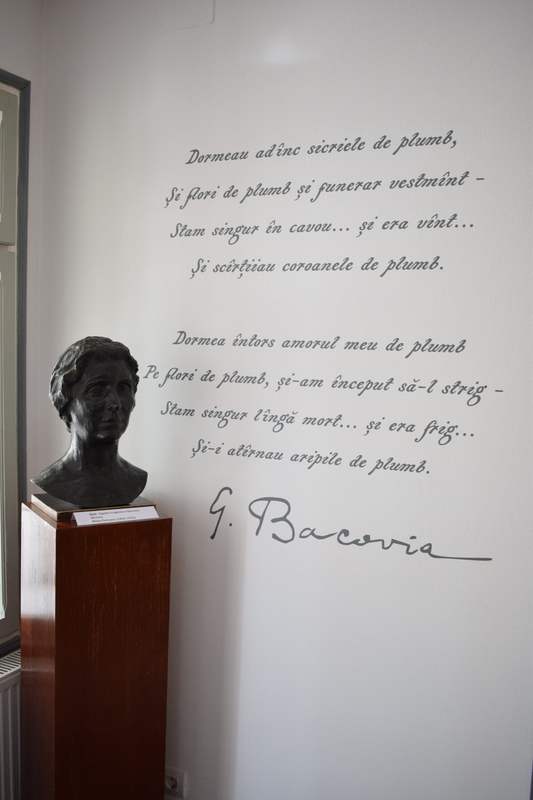 Dormeau adînc sicriele de plumb,
Și flori de plumb și funerar vestmînt -
Stam singur în cavou... și era vînt...
Și scîrțiiau coroanele de plumb.
Dormea întors amorul meu de plumb
Pe flori de plumb, și-am început să-l strig -
Stam singur lîngă mort... și era frig...
Și-i atîrnau aripile de plumb.
G. Bacovia